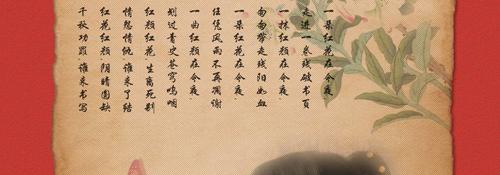 一朵红花在今夜
走进一条残破书页
一抹红颜在今夜
匆匆带走残阳如血
一朵红花在今夜
任凭风雨不再凋谢
一曲红颜在今夜
划过青史苍穹呜咽
红颜红花,生离死别
情怨情仇,谁来了结
红花红颜,阴晴圆缺
千秋功罪,谁来书写